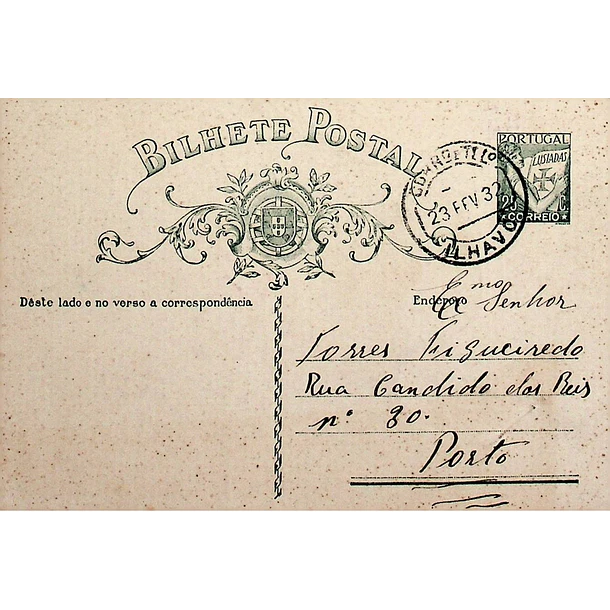 BILHETE POSTAL
PORTUGAL
LUSIADAS
25 C.
CORREIO
23 FEV 32
ILHAVO
Dêste lado e no verso a correspondência
Endereço
Exmo Senhor
Torres Figueiredo
Rua Candido dos Reis
nº 30.
Porto